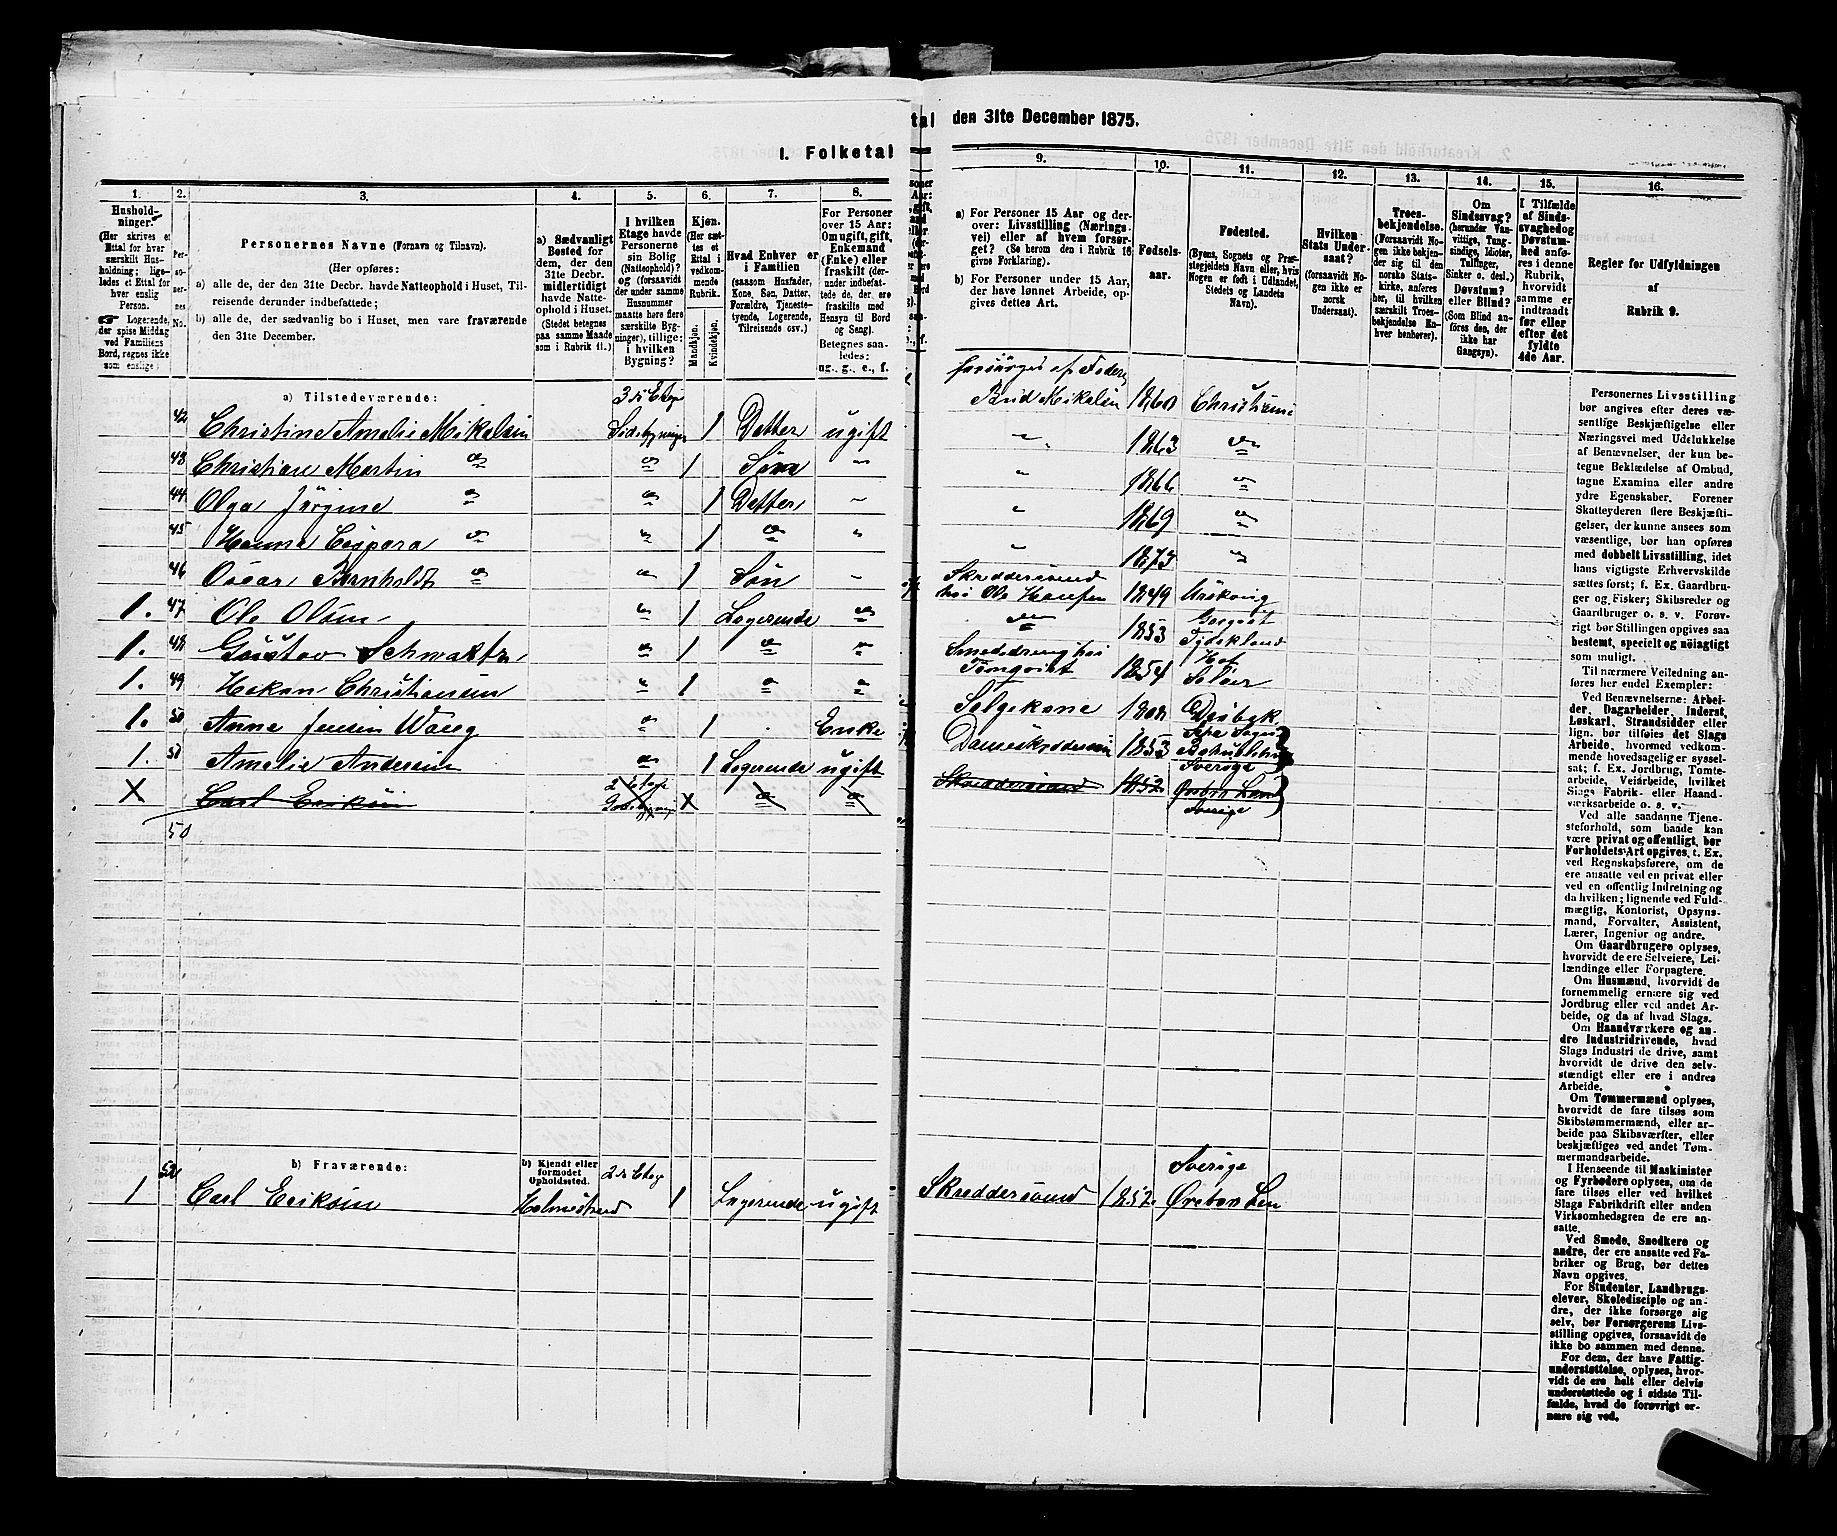 I. Folketal
tal den 31te December 1875.
1. 2. 3. 4. 5. 6. 7. 8.
Hushold-
ninger.
(Her skrives et
Ettal for hver
særskilt Hus-
holdning; lige-
ledes et Ettal for
hver enslig
Person.
Logerende,
der spise Middag
ved Familiens
Bord, regnes ikke
som enslige)
Per-
so-
ner-
nes
No.
Personernes Navne (Fornavn og Tilnavn).
(Her opføres:
a) alle de, der den 31te Decbr. havde Natteophold i Huset, Til-
reisende derunder indbefattede;
b) alle de, der sædvanlig bo i Huset, men vare fraværende
den 31te December.
a) Sædvanligt
Bosted for
dem, der den
31te Decbr.
midlertidigt
havde Natte-
ophold i Huset.
(Stedet betegnes
paa samme Maade
som i Rubrik 11.)
I hvilken
Etage havde
Personerne
sin Bolig
(Natteophold)?
og (forsaavidt
der under samme
Husnummer
maatte høre flere
særskilte Byg-
ninger), tillige:
i hvilken
Bygning?
Kjøn.
(Her sæt-
tes et
Ettal i
vedkom-
mende
Rubrik.
Mandkjøn.
Kvindekjøn.
Hvad Enhver er
i Familien
(saasom Husfader,
Kone, Søn, Datter,
Forældre, Tjeneste-
tyende, Logerende,
Tilreisende osv.)
For Personer
over 15 Aar:
Om ugift, gift,
Enkemand
(Enke) eller
fraskilt (der-
under indbefat-
tede de, der ere
fraskilte med
Hensyn til Bord
og Seng).
Betegnes saa-
ledes:
ug., g., e., f.
9. 10. 11. 12. 13. 14. 15. 16.
a) For Personer 15 Aar og der-
over: Livsstilling (Nærings-
vei) eller af hvem forsør-
get? (Se herom den i Rubrik 16
givne Forklaring).
b) For Personer under 15 Aar,
der have lønnet Arbeide, op-
gives dettes Art.
Fødsels-
aar.
Fødested.
(Byens, Sognets og Præ-
stegjeldets Navn eller, hvis
Nogen er født i Udlandet,
Stedets og Landets
Navn).
Hvilken
Stats Under-
saat?
(forsaavidt No-
gen ikke er
norsk
Undersaat).
Troes-
bekjendelse.
(Forsaavidt No-
gen ikke bekjen-
der sig til den
norske Stats-
kirke, anføres
her, til hvilken
særskilt Troes-
bekjendelse En-
hver henhører).
Om
Sindssvag?
(herunder Van-
vittige, Tung-
sindige, Idioter,
Tullinger,
Sinker o. desl.)
Døvstum?
eller Blind?
(Som Blind an-
føres de, der
ikke har
Gangsyn).
I Tilfælde
af Sinds-
svaghed og
Døvstum-
hed anfø-
res i denne
Rubrik,
hvorvidt
samme er
indtraadt
før eller
efter det
fyldte
4de Aar.
Regler for Udfyldningen
af
Rubrik 9.
a) Tilstedeværende:
42 Christine Amelie Mikelsen 3die Etage Sidebygningen 1 Datter ugift forsørges af Fader 1860 Christiania
43 Christian Martin do do 1 Søn " " 1863 do
44 Olga Jørgine do do 1 Datter " " 1866 do
45 Hanna Caspara do " 1 do " " 1869 do
46 Oscar Bernholdt do " 1 Søn " " 1873 "
1. 47 Ole Olsen " 1 Logerende do Skreddersvend hos Ole Hansen 1849
1. 48 Gustav do 1 do " do 1853 Tydskland
1. 49 Hakon Christiansen " 1 do do Smededreng hos 1854 Hof Solør
1. 50 Anne Jensen do 1 Enke Selgekone 1808
1. 51 Amelie Andersen do 1 Logerende ugift 1853 Sverige
X Carl Eriksen 2 Etage X do do Skreddersvend 1852 Ørebro Len Sverige
50
b) Fraværende:
b) Kjendt eller
formodet
Opholdssted.
1 52 Carl Eriksen Holmestrand 2de Etage 1 Logerende ugift Skreddersvend 1852 Sverige Ørebro Len
Personernes Livsstilling
bør angives efter deres væ-
sentlige Beskjæftigelse eller
Næringsvei med Udelukkelse
af Benævnelser, der kun be-
tegne Beklædelse af Ombud,
tagne Examina eller andre
ydre Egenskaber. Forener
Skatteyderen flere Beskjæfti-
gelser, der kunne ansees som
væsentlige, bør han opføres
med dobbelt Livsstilling, idet
hans vigtigste Erhvervskilde
sættes først; f. Ex. Gaardbru-
ger og Fisker; Skibsreder og
Gaardbruger o. s. v. Forøv-
rigt bør Stillingen opgives saa
bestemt, specielt og nøiagtigt
som muligt.
Til nærmere Veiledning an-
føres her endel Exempler:
Ved Benævnelserne: Arbei-
der, Dagarbeider, Inderst,
Løskarl, Strandsidder eller
lign. bør tilføies det Slags
Arbeide, hvormed vedkom-
mende hovedsagelig er syssel-
sat; f. Ex. Jordbrug, Tomte-
arbeide, Veiarbeide, hvilket
Slags Fabrik- eller Haand-
værksarbeide o. s. v.
Ved alle saadanne Tjene-
steforhold, som baade kan
være privat og offentligt, bør
Forholdets Art opgives, t. Ex.
ved Regnskabsførere, om de
ere ansatte ved en privat eller
ved en offentlig Indretning og
da hvilken; lignende ved Fuld-
mægtig, Kontorist, Opsyns-
mand, Forvalter, Assistent,
Lærer, Ingeniør og andre.
Om Gaardbrugere oplyses,
hvorvidt de ere Selveiere, Lei-
lændinge eller Forpagtere.
Om Husmænd, hvorvidt de
fornemmelig ernære sig ved
Jordbrug eller ved andet Ar-
beide, og da af hvad Slags.
Om Haandværkere og an-
dre Industridrivende, hvad
Slags Industri de drive, samt
hvorvidt de drive den selv-
stændigt eller ere i andres
Arbeide.
Om Tømmermænd oplyses,
hvorvidt de fare tilsøs som
Skibstømmermænd, eller ar-
beide paa Skibsværfter, eller
beskjæftiges ved andet Tøm-
mermandsarbeide.
I Henseende til Maskinister
og Fyrbødere oplyses, om de
fare tilsøs eller ved hvilket
Slags Fabrikdrift eller anden
Virksomhedsgren de ere an-
satte.
Ved Smede, Snedkere og
andre, der ere ansatte ved Fa-
briker og Brug, bør dettes
Navn opgives.
For Studenter, Landbrugs-
elever, Skoledisciple og an-
dre, der ikke forsørge sig
selv, bør Forsørgerens Livs-
stilling opgives, forsaavidt de
ikke bo sammen med denne.
For dem, der have Fattig-
understøttelse, oplyses, hvor-
vidt de ere helt eller delvis
understøttede og i sidste Til-
fælde, hvad de forøvrigt er-
nære sig ved.